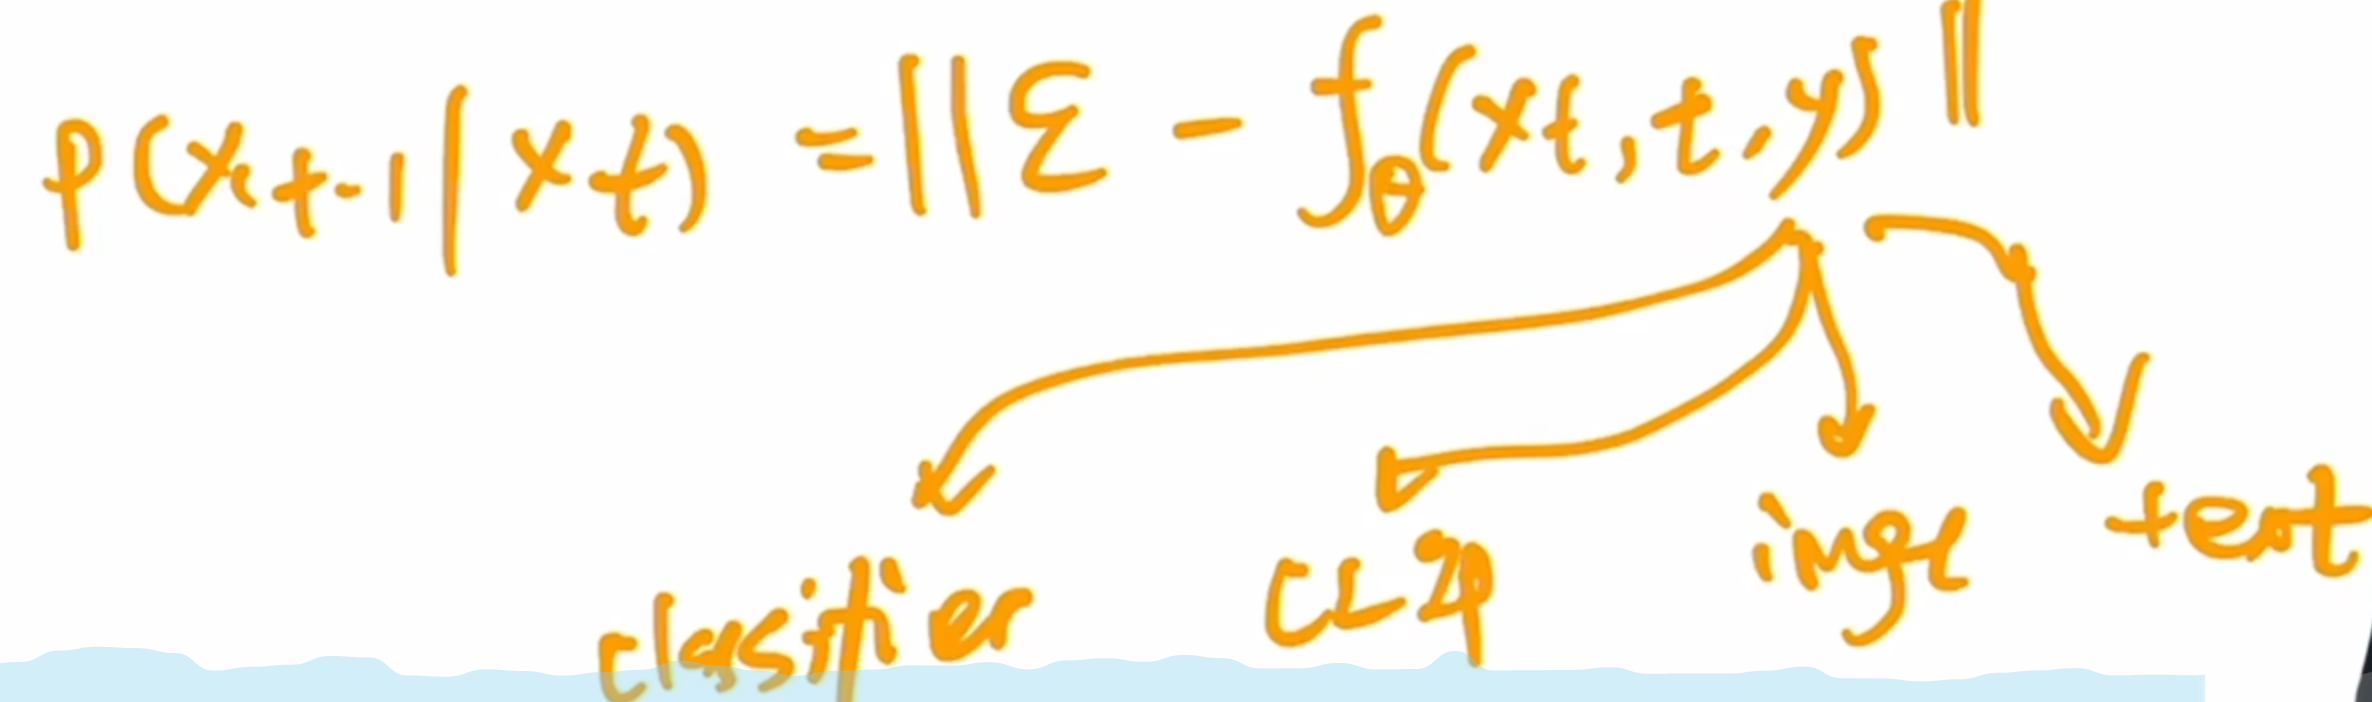 p(x_{t-1} | x_t) = ||ε - f_θ(x_t, t, y)||
classifier CLIP image text